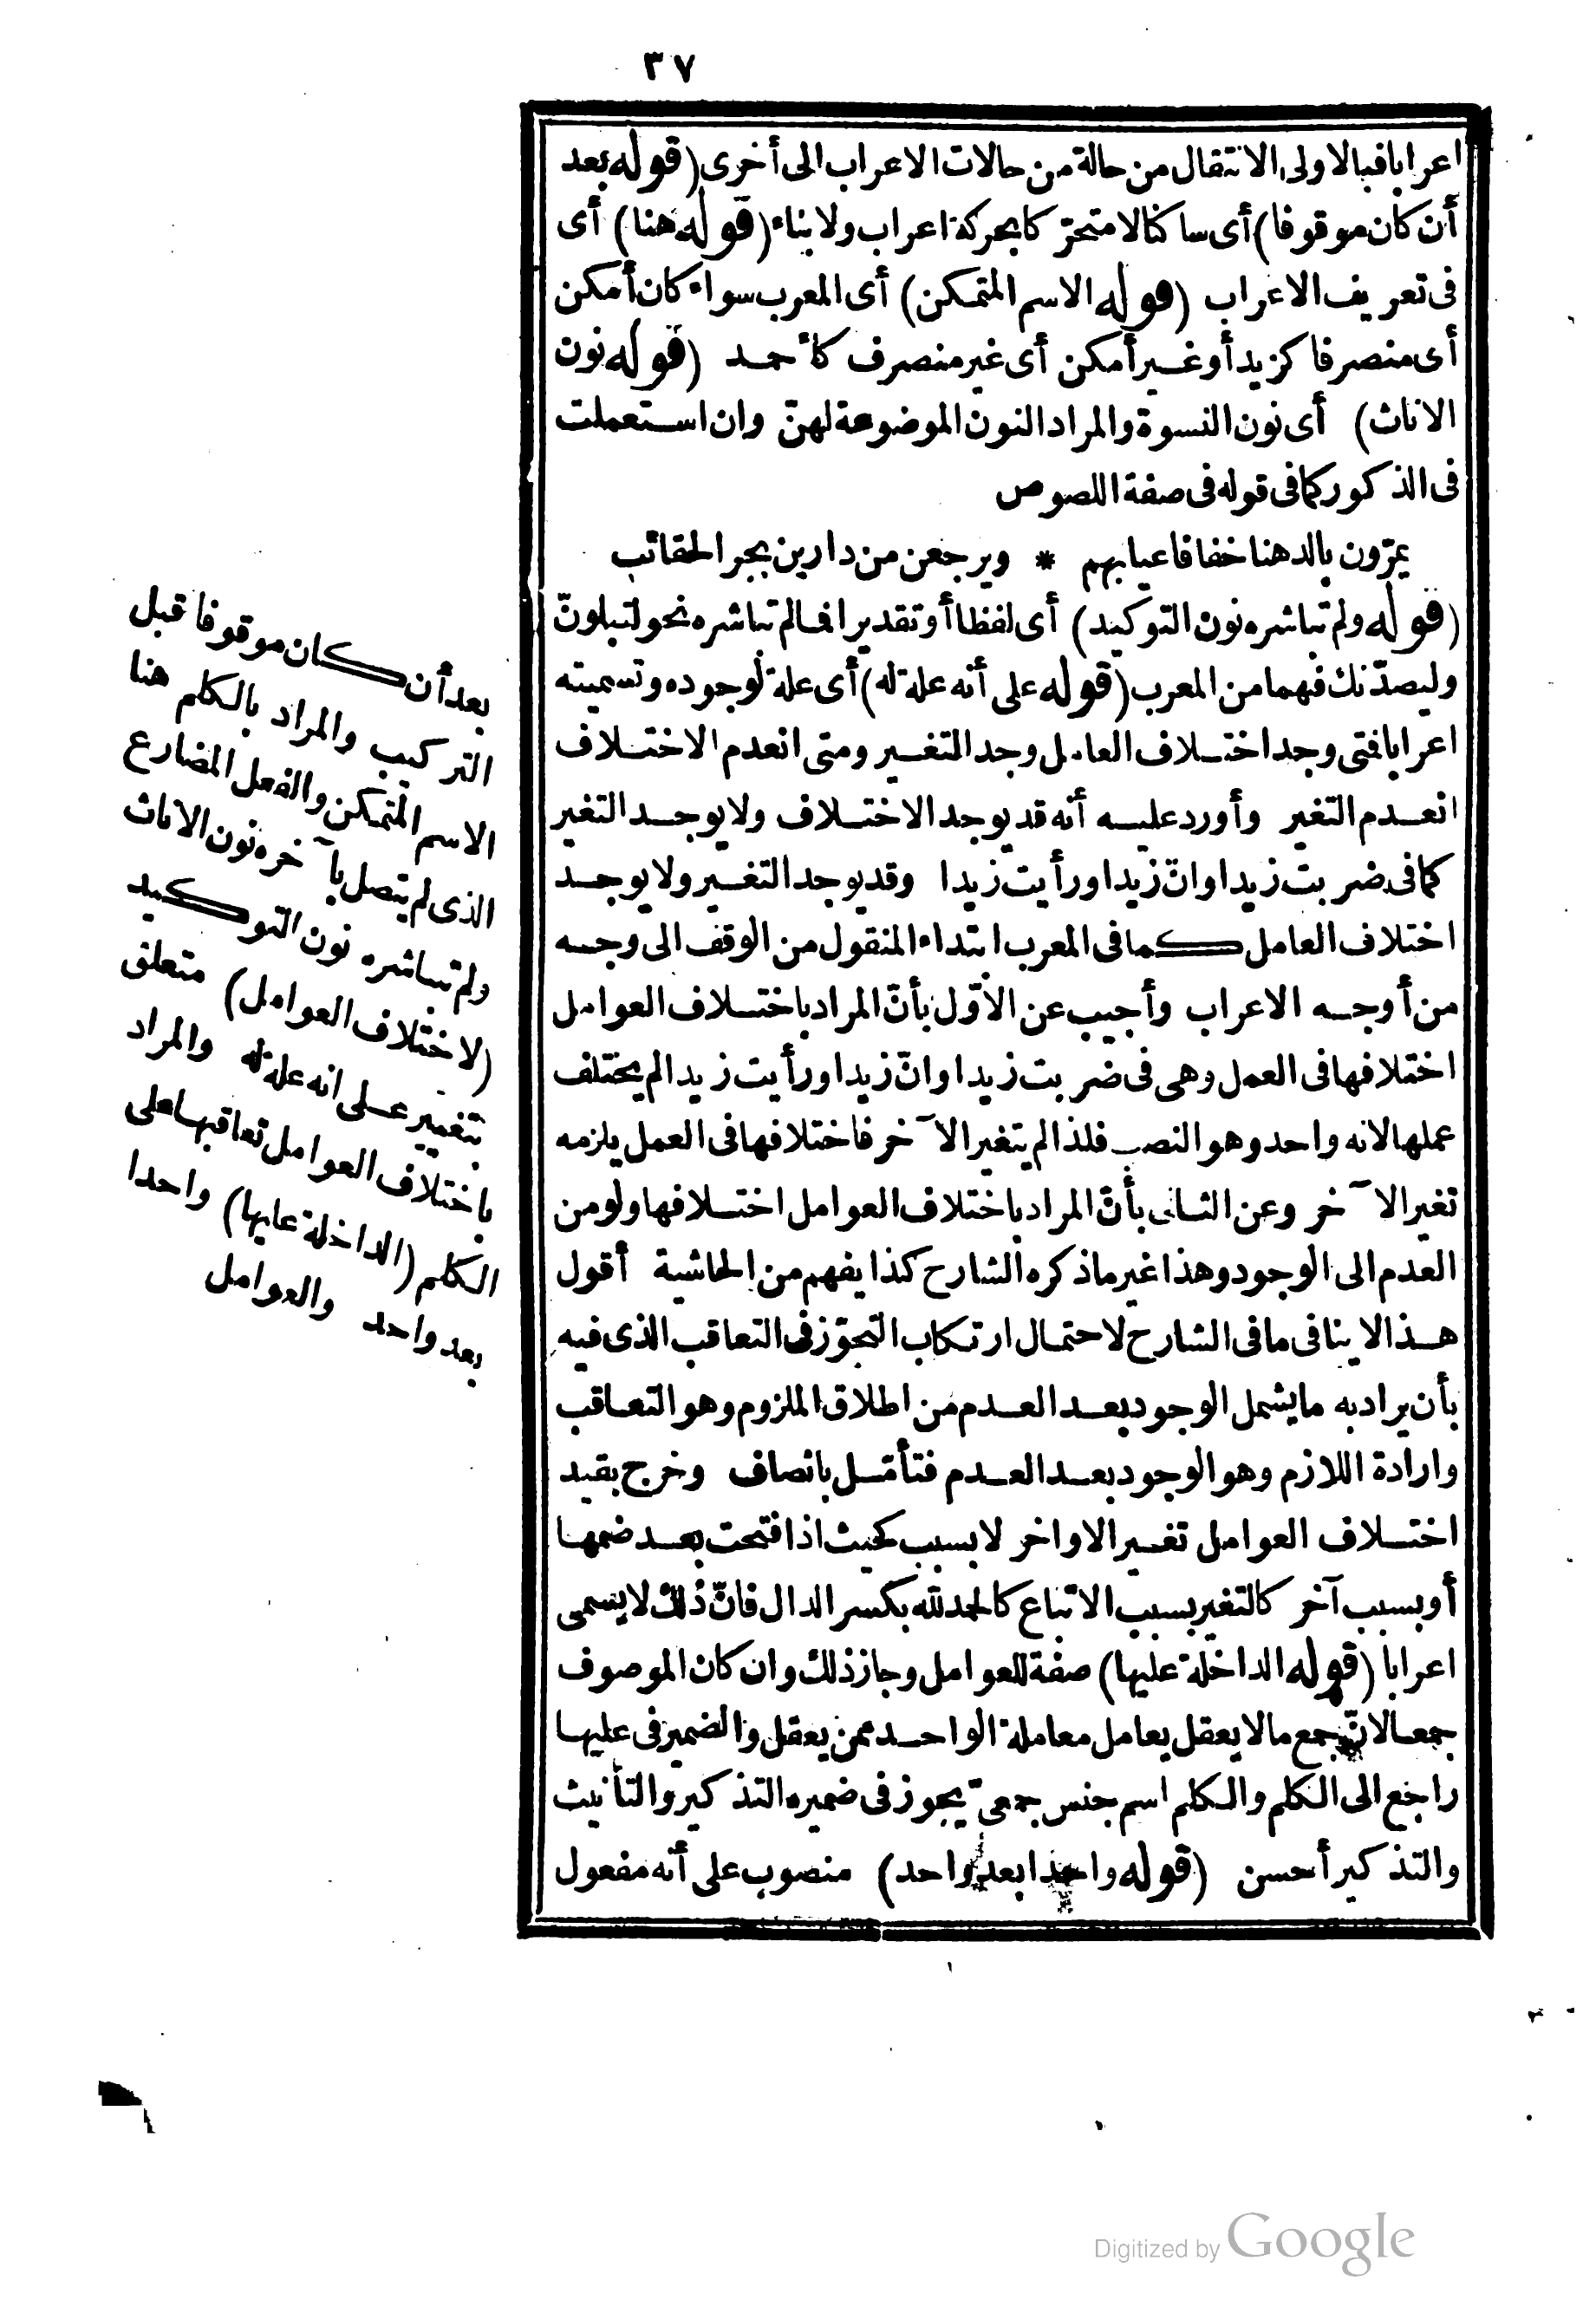 ٣٧
اعرابا فبالاولى الانتقال من حالة من حالات الاعراب الى أخرى (قوله بعد
أن كان موقوفا) أى ساكنا لا متحرّكا بحركة اعراب ولا بناء (قوله هنا) أى
فى تعريف الاعراب (قوله الاسم المتمكن) أى المعرب سواء كان أمكن
أى منصرفا كزيد أو غير أمكن أى غير منصرف كأحمد (قوله نون
الاناث) أى نون النسوة والمراد النون الموضوعة لهنّ وان استعملت
فى الذكور كما فى قوله فى صفة اللصوص
يمرّون بالدهنا خفافا عيابهم * ويرجعن من دارين بجر الحقائب
(قوله ولم تباشره نون التوكيد) أى لفظا أو تقديرا فالم تباشره نحو لتبلونّ
وليصدّنك فهما من المعرب (قوله على أنه علة له) أى علة لوجوده وتسميته
اعرابا فتى وجد اختلاف العامل وجد التغير ومتى انعدم الاختلاف
انعدم التغير وأورد عليه أنه قد يوجد الاختلاف ولا يوجد التغير
كما فى ضربت زيدا وانّ زيدا ورأيت زيدا وقد يوجد التغير ولا يوجد
اختلاف العامل كما فى المعرب ابتداء المنقول من الوقف الى وجه
من أوجه الاعراب وأجيب عن الأوّل بأنّ المراد باختلاف العوامل
اختلافها فى العمل وهى فى ضربت زيدا وانّ زيدا ورأيت زيدا لم يختلف
عملها لانه واحد وهو النصب فلذا لم يتغير الآخر فاختلافها فى العمل يلزمه
تغير الآخر وعن الثانى بأنّ المراد باختلاف العوامل اختلافها ولو من
العدم الى الوجود وهذا غير ما ذكره الشارح كذا يفهم من الحاشية أقول
هذا لا ينافى ما فى الشارح لاحتمال ارتكاب التجوّز فى التعاقب الذى فيه
بأن يراد به ما يشمل الوجود بعد العدم من اطلاق الملزوم وهو التعاقب
وارادة اللازم وهو الوجود بعد العدم فتأمّل بانصاف وخرج بقيد
اختلاف العوامل تغير الاواخر لا بسبب كحيث اذا فتحت بعد ضمها
أو بسبب آخر كالتغير بسبب الاتباع كالحمد لله بكسر الدال فانّ ذلك لا يسمى
اعرابا (قوله الداخلة عليها) صفة للعوامل وجاز ذلك وان كان الموصوف
جمعا لانّ جمع ما لا يعقل يعامل معاملة الواحد ممن يعقل والضمير فى عليها
راجع الى الكلم والكلم اسم جنس جمعىّ يجوز فى ضميره التذكير والتأنيث
والتذكير أحسن (قوله واحدا بعد واحد) منصوب على أنه مفعول
بعد أن كان موقوفا قبل
التركيب والمراد بالكلم هنا
الاسم المتمكن والفعل المضارع
الذى لم يتصل بآخره نون الاناث
ولم تباشره نون التوكيد
(لاختلاف العوامل) متعلق
بتغيير على انه علة له والمراد
باختلاف العوامل تعاقبها على
الكلم (الداخلة عليها) واحدا
بعد واحد والعوامل
Digitized by Google